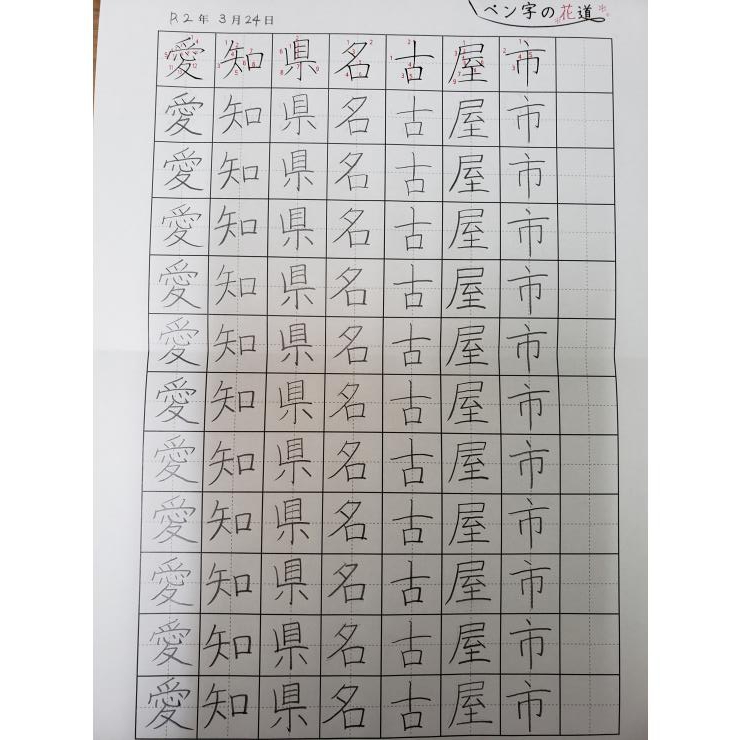 R2年 3月24日
ペン字の花道
愛知県名古屋市
愛知県名古屋市
愛知県名古屋市
愛知県名古屋市
愛知県名古屋市
愛知県名古屋市
愛知県名古屋市
愛知県名古屋市
愛知県名古屋市
愛知県名古屋市
愛知県名古屋市
愛知県名古屋市